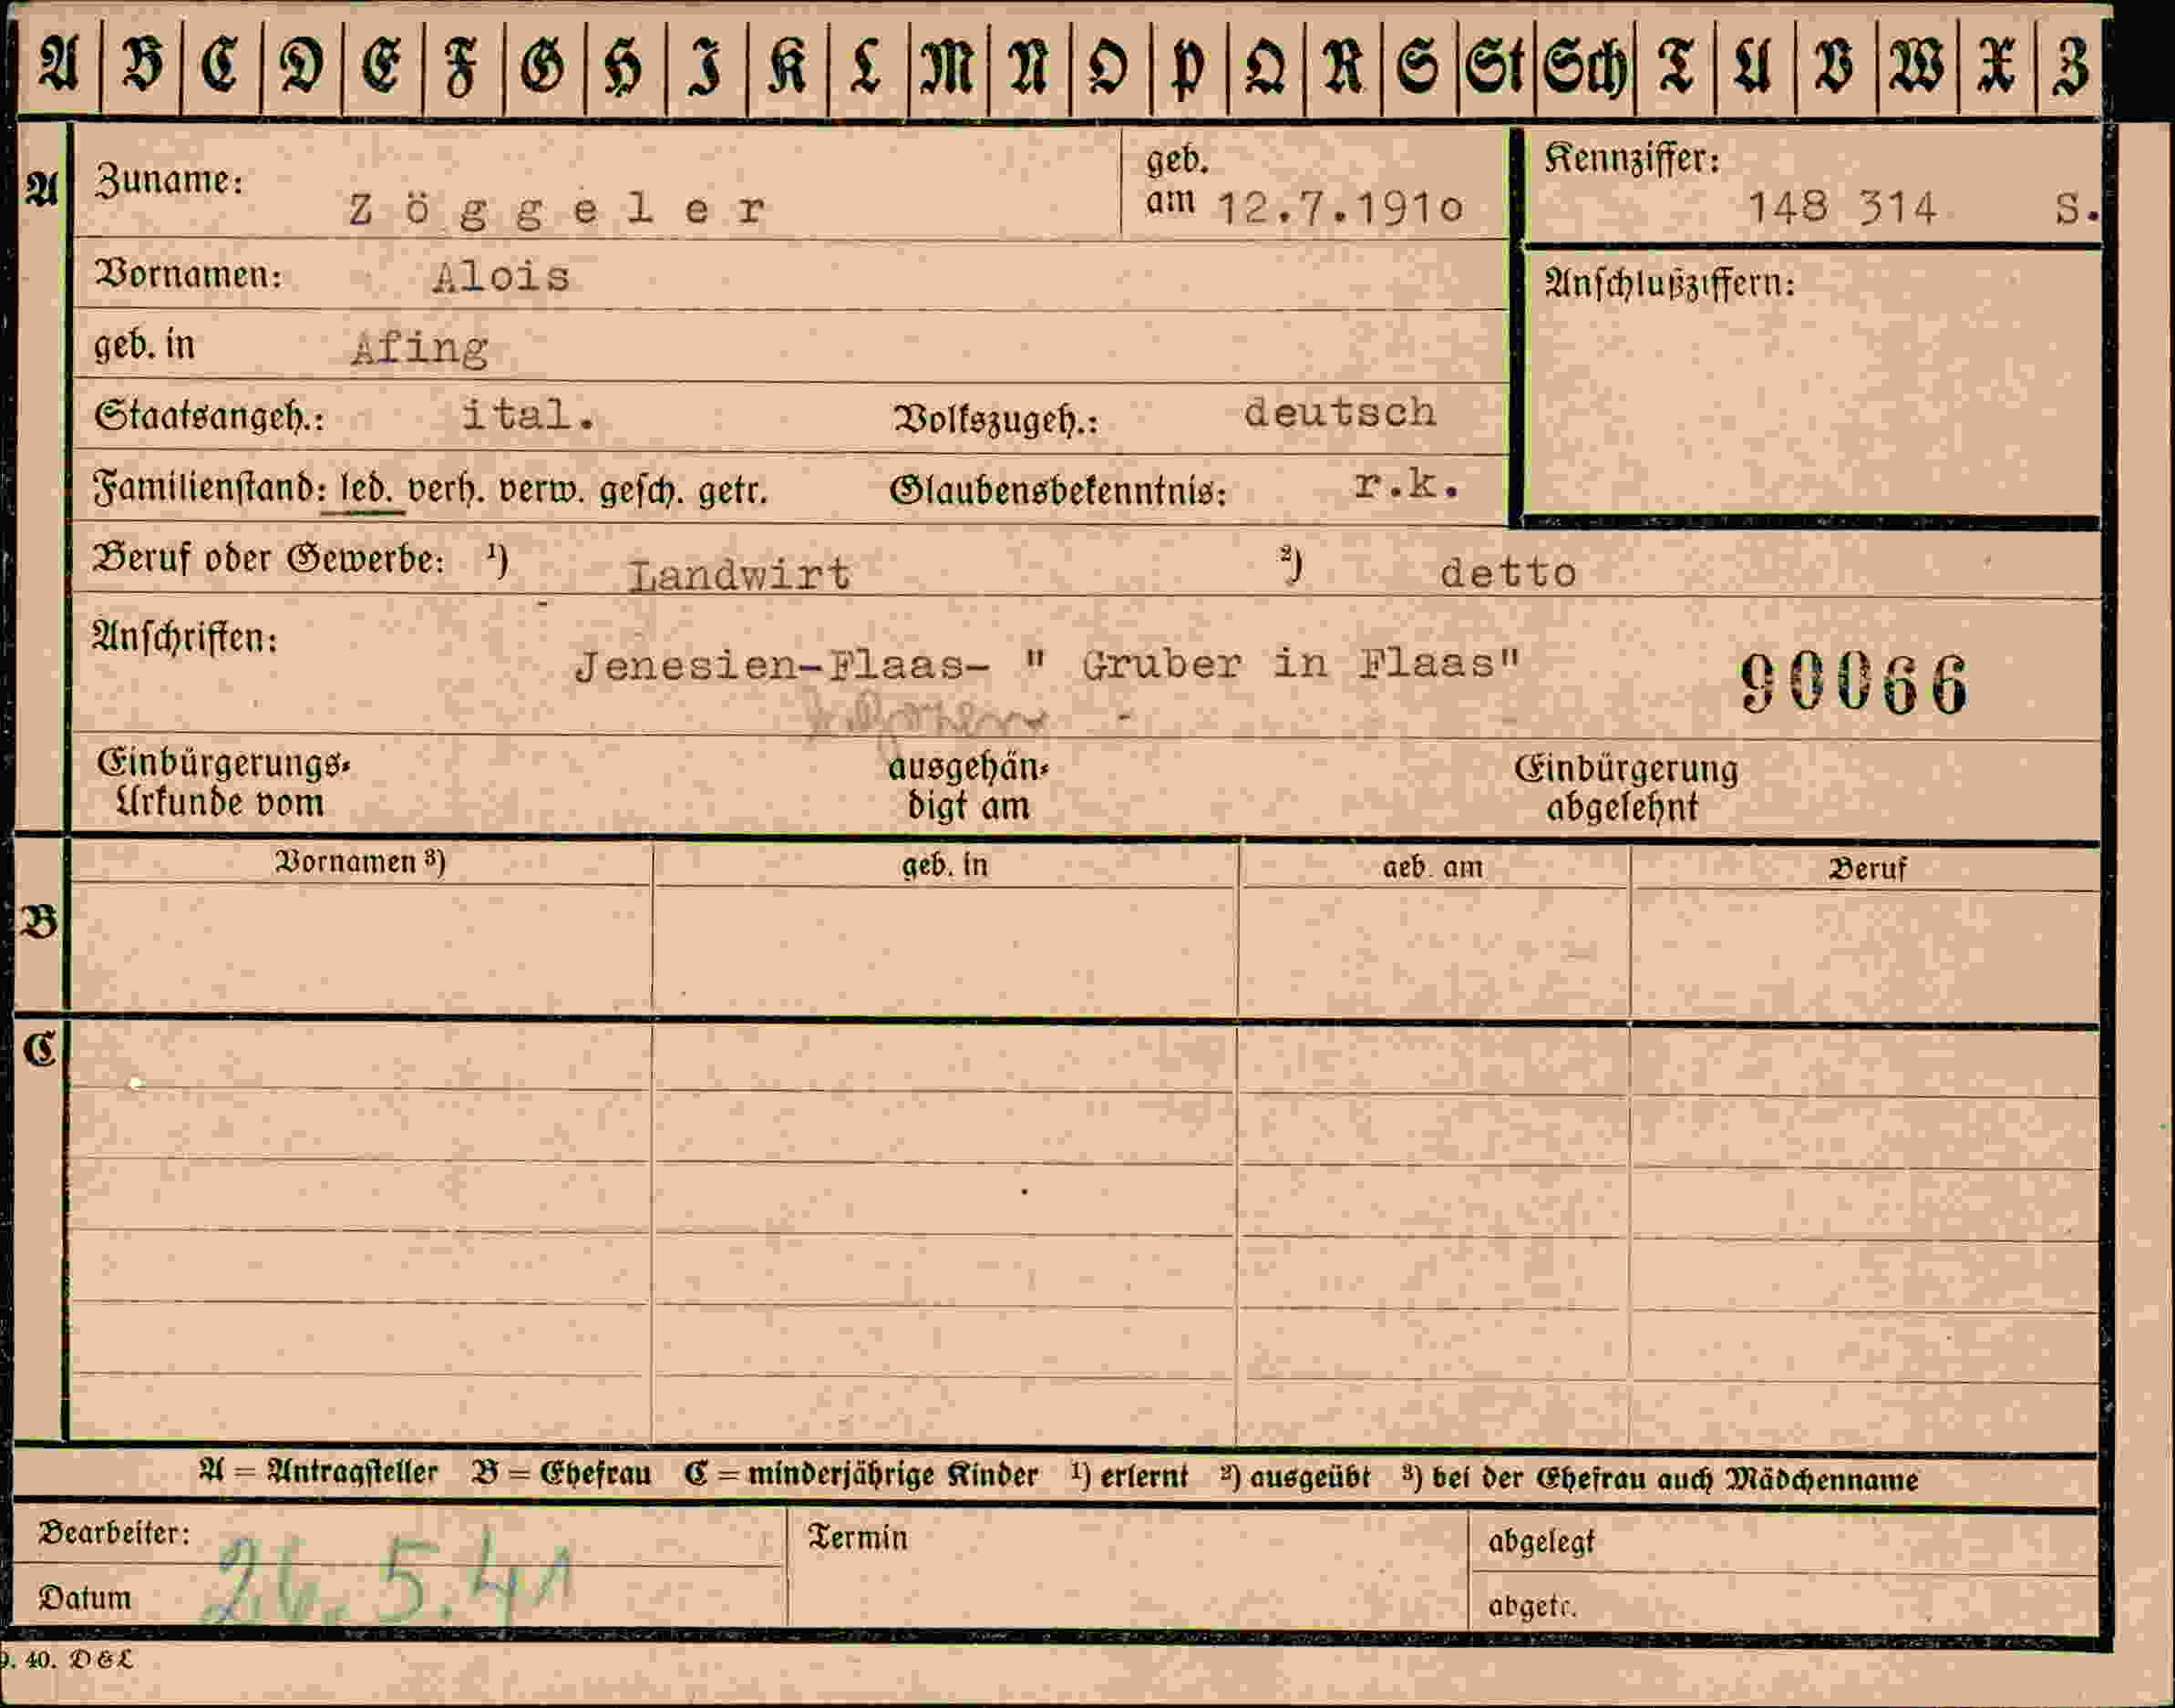 A B C D E F G H I K L M N O P Q R S St Sch T U V W X Z
A Zuname: Zöggeler geb. am 12.7.191o Kennziffer: 148 314 S.
Vornamen: Alois Anschlußziffern:
geb. in Afing
Staatsangeh.: ital. Volkszugeh.: deutsch
Familienstand: led. verh. verw. gesch. getr. Glaubensbekenntnis: r.k.
Beruf oder Gewerbe: ¹) Landwirt ²) detto
Anschriften: Jenesien-Flaas- " Gruber in Flaas" 90066
Einbürgerungs- ausgehän- Einbürgerung
Urkunde vom digt am abgelehnt
Vornamen ³) geb. in geb. am Beruf
B
C
A = Antragsteller B = Ehefrau C = minderjährige Kinder ¹) erlernt ²) ausgeübt ³) bei der Ehefrau auch Mädchenname
Bearbeiter: Termin abgelegt
Datum 26.5.41 abgetr.
9. 40. D&L